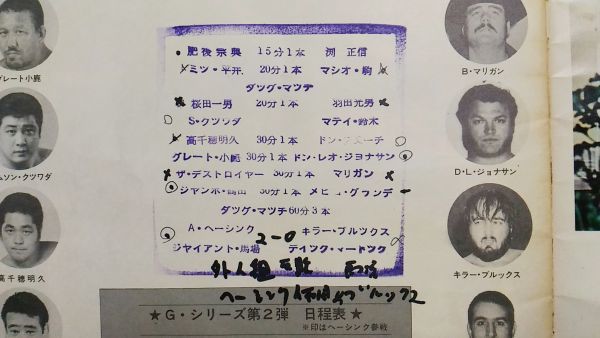 グレート小鹿
ムソン・クツワダ
高千穂明久
肥後宗典 15分1本 渕 正信
ミツ・平井 20分1本 マシオ・駒
タッグ・マッチ
桜田一男 20分1本 羽田光男
S・クツワダ マティ・鈴木
高千穂明久 30分1本 ドン・
グレート・小鹿 30分1本 ドン・レオ・ジョナサン
ザ・デストロイヤー 30分1本 マリガン
ジャンボ・鶴田 30分1本 メヒコ・グランデ
タッグ・マッチ 60分3本
A・ヘーシンク キラー・ブルックス
2-0
ジャイアント・馬場
外人組
ヘーシンク
★G・シリーズ第2弾 日程表★
※印はヘーシンク参戦
B・マリガン
D・L・ジョナサン
キラー・ブルックス